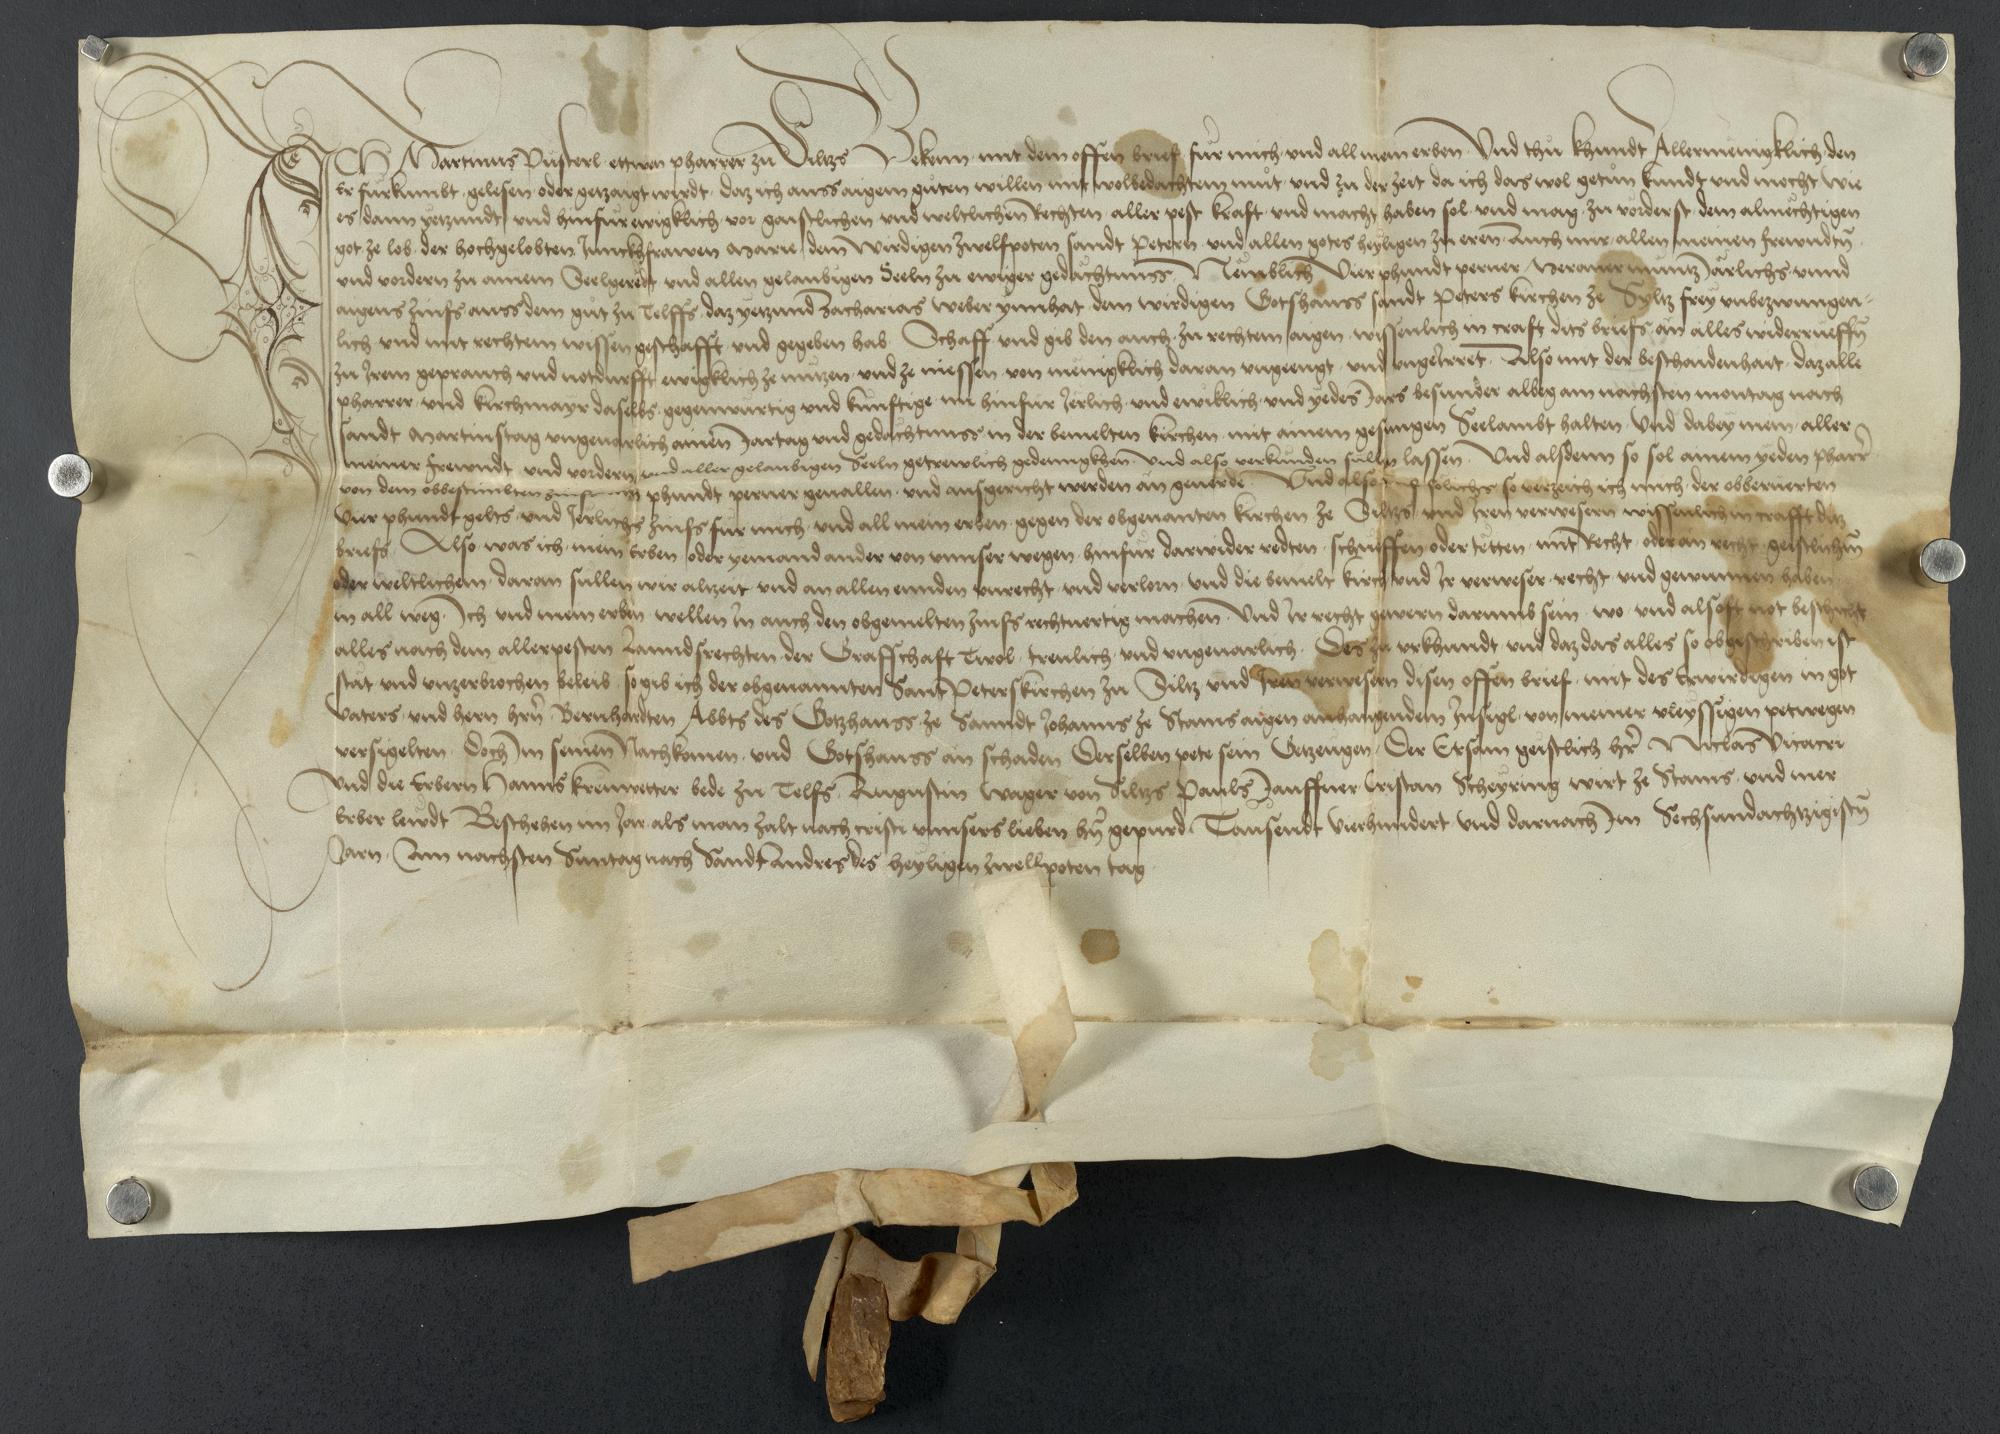 Ich Martinus Pusterl ettwen pharrer zu Siltzs Bekenn mit dem offen brief fur mich und all mein erben Und thu khundt Allermenigklich den
er furkumbt gelesen oder getzaigt wirdt daz ich auss aigem guten willen mit wolbedachtem mut und zu der zeit da ich das wol getun kundt und mocht Wie
es dann yetzundt und hinfur ewigklich vor gaistlichen und weltlichen Rechten aller pest kraft und macht haben sol und mag zu vorderst dem almechtigen
got ze lob der hochgelobten Junckhfrawen Marie dem Wirdigen zwelfpoten sandt Petern und allen gotes heyligen zu eren Auch mir allen meinen frewndtn
und vordern zu ainem Seelgeredt und allen gelaubigen Seeln zu ewiger gedächtnuss Nemblich Vier phundt perner Meraner muntz Järlichs unnd
aigens zinss auss dem gut zu Telffs daz yetzund Zacharias Weber ynnhat dem wirdigen Gotshauss sandt Peters kirchen ze Syltz frey unbezwungen-
lich und mit rechtem wissen geschafft und gegeben hab Schaff und gib den auch zu rechtem aigen wissenlich in craft dits briefs an alles widerrueffn
zu Irem geprauch und notdurfft ewigklich ze nutzen und ze niessen von menigklich daran ungeengt und ungeirret Also mit der beschaidenhait daz alle
pharrer und kirchmayr daselbs gegenwurtig und kunftige nu hinfur Jerlich und ewiklich und yedes Jars besunder albeg am nachsten montag nach
sandt Martinstag ungevarlich ainen Jartag und gedachtnuss in der bemelten kirchen mit ainem gesungen Seelambt halten Und dabey mein aller
meiner frewndt und vordern und aller gelaubigen Seeln getrewlich gedenngkhen und also verkunden sullen lassen Und alsdenn so sol ainem yeden pharrer
von dem obbestimbten phundt perner gevallen und ausgericht werden an geverde Und also solichs so verzeich ich mich der obberuerten
Vier phundt gelts und Jerlichs zinss fur mich und all mein erben gegen der obgenanten kirchen ze Siltzs und Iren verwesern wissenlich in crafft ditz
briefs Also was ich mein Erben oder yemand ander von unnser wegen hinfur darwider redten schueffen oder tetten mit Recht oder an recht geistlichem
oder weltlichem daran sullen wir alzeit und an allen ennden unrecht und verlorn und die bemelt kirch und Ir verweser recht und gewunnen haben
in all weg Ich und mein erben wellen In auch den obgemelten zinss rechtvertig machen Und Ir recht gewern darumb sein wo und alsoft not beschicht
alles nach dem allerpesten Lanndsrechten der Graffschaft Tirol trewlich und ungevarlich Des zu urkhundt und daz das alles so obgeschriben ist
stat und unzerbrochen beleib so gib ich der obgenannten Sant Peterskirchen zu Siltz und Iren verwesern disen offen brief mit des Erwirdigen in got
Vaters und hern hern Bernhardten Abbts des Gotzhauss ze Sanndt Johanns ze Stams aigen anhangendem Insigl von meiner vleyssigen petwegen
versigelten Doch Im seinen Nachkomen und Gotshauss an schaden Derselben pete sein Getzeugen Der Ersam geistlich her Niclas Vicari
Und die Erbern Hanns krenwetter bede zu Telfs Augustin Wager von Siltzs Pauls Janffner Cristan Scheyring wirt ze Stams und mer
Erber leudt Beschehen im Jar als man zalt nach cristi unnsers lieben hern gepurd Tausendt Vierhundert und darnach Im Sechsundachtzigistn
Jarn Am nachsten Suntag nach Sandt Andres des heyligen zwelfpoten tag